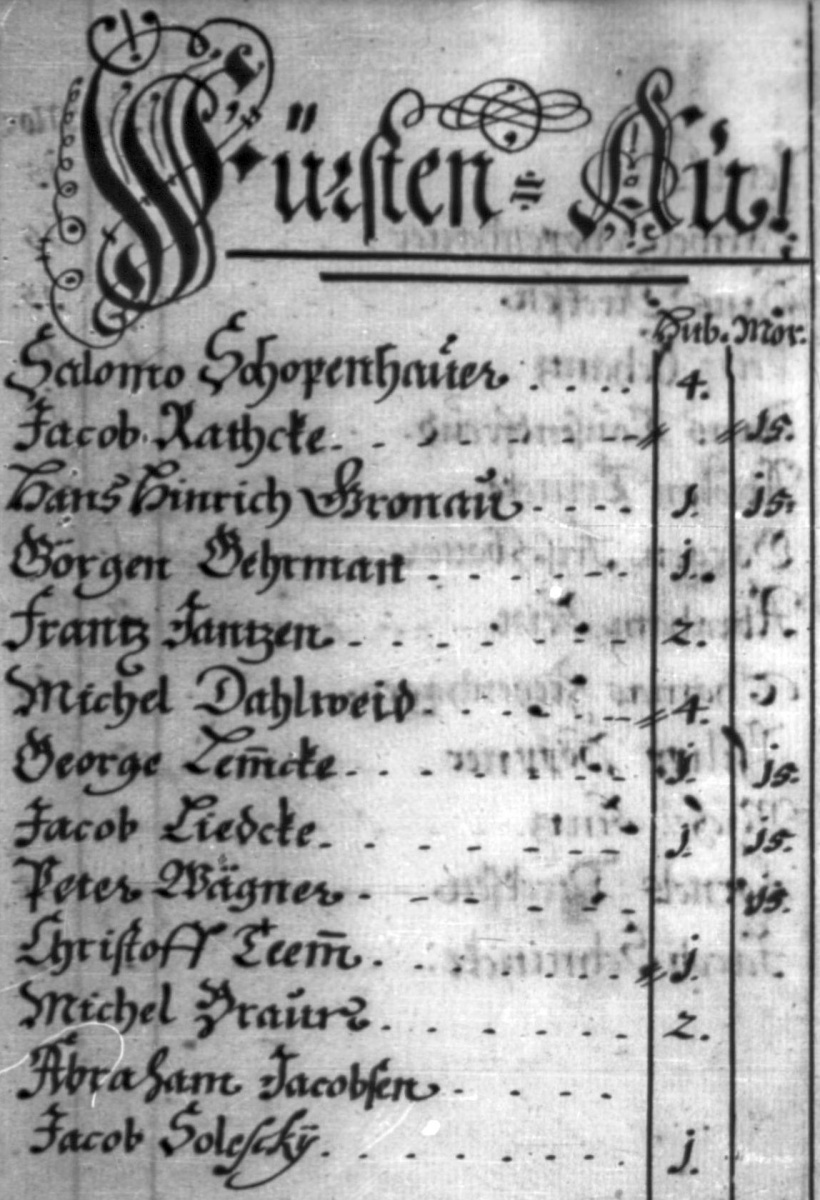 Fürsten = Aü!
Hub. Mor.
Salomo Schopenhaüer . . . . 4.
Jacob Rathcke. - - - - - - . 15.
Hans Hinrich Gronaü . . . . 1. 15.
Görgen Gehrman . . . . . 1.
Frantz Jantzen . . . . . . 2.
Michel Dahlweid . . . . . 4.
George Lem̄cke . . . . . . 1. 15.
Jacob Liedcke . . . . . . 1. 15.
Peter Wägner . . . . . . 15.
Christoff Teem̄ . . . . . . 1.
Michel . . . . . . 2.
Abraham Jacobsen . . . .
Jacob Solesckÿ . . . . . . 1.